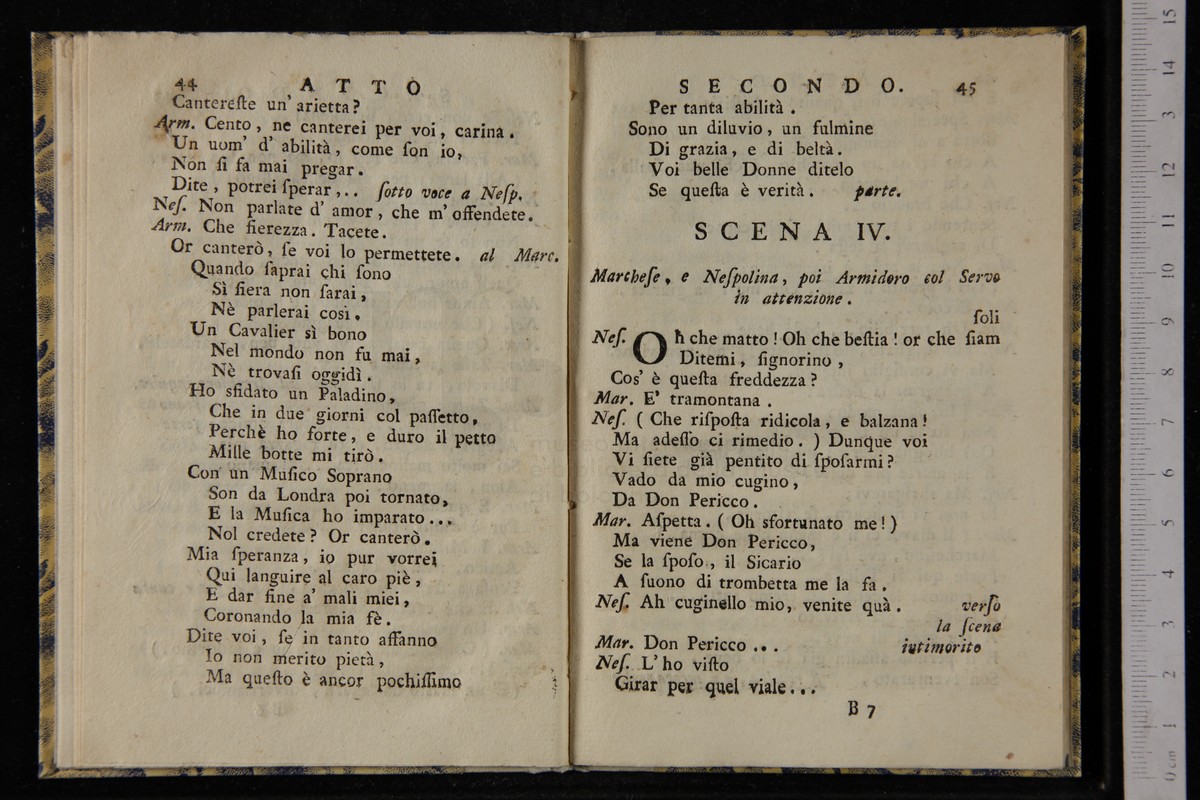 44 ATTO
Cantereſte un' arietta?
Arm. Cento, ne canterei per voi, carina.
Un uom' d' abilità, come ſon io,
Non ſi fa mai pregar.
Dite, potrei ſperar,.. ſotto voce a Neſp.
Neſ. Non parlate d' amor, che m' offendete.
Arm. Che fierezza. Tacete.
Or canterò, ſe voi lo permettete. al Marc.
Quando ſaprai chi ſono
Sì fiera non ſarai,
Nè parlerai così.
Un Cavalier sì bono
Nel mondo non fu mai,
Nè trovaſi oggidì.
Ho sfidato un Paladino,
Che in due giorni col paſſetto,
Perchè ho forte, e duro il petto
Mille botte mi tirò.
Con un Muſico Soprano
Son da Londra poi tornato,
E la Muſica ho imparato...
Nol credete? Or canterò.
Mia ſperanza, io pur vorrei
Qui languire al caro piè,
E dar fine a' mali miei,
Coronando la mia fè.
Dite voi, ſe in tanto affanno
Io non merito pietà,
Ma queſto è ancor pochiſſimo
SECONDO. 45
Per tanta abilità.
Sono un diluvio, un fulmine
Di grazia, e di beltà.
Voi belle Donne ditelo
Se queſta è verità. parte.
SCENA IV.
Marcheſe, e Neſpolina, poi Armidoro col Servo
in attenzione.
ſoli
Neſ. Oh che matto! Oh che beſtia! or che ſiam
Ditemi, ſignorino,
Cos' è queſta freddezza?
Mar. E' tramontana.
Neſ. (Che riſpoſta ridicola, e balzana!
Ma adeſſo ci rimedio.) Dunque voi
Vi ſiete già pentito di ſpoſarmi?
Vado da mio cugino,
Da Don Pericco.
Mar. Aſpetta. (Oh sfortunato me!)
Ma viene Don Pericco,
Se la ſpoſo, il Sicario
A ſuono di trombetta me la fa.
Neſ. Ah cuginello mio, venite quà. verſo
la ſcena
Mar. Don Pericco... intimorito
Neſ. L' ho viſto
Girar per quel viale...
B 7
0 cm 1 2 3 4 5 6 7 8 9 10 11 12 13 14 15